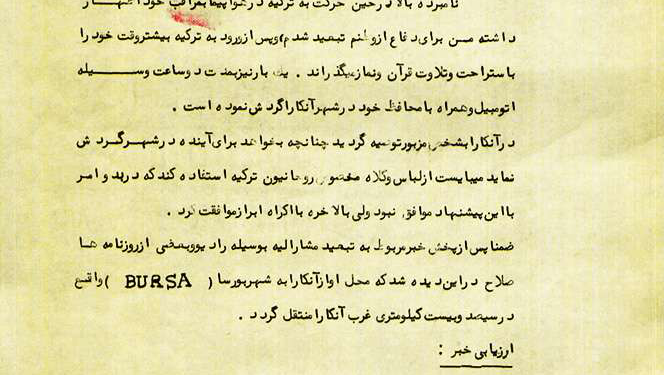 نامبرده بالا درحین حرکت به ترکیه درهواپیما بمراقب خود اظهار
داشته من برای دفاع ازوطنم تبعید شدم، وپس ازورود به ترکیه بیشتروقت خود را
باستراحت وتلاوت قرآن ونماز میگذراند . یک بارنیزبمدت دوساعت وسیله
اتومبیل وهمراه بامحافظ خود درشهرآنکاراگردش نموده است .
درآنکارابشخص مزبورتوصیه گردید چنانچه بخواهد برای آینده درشهرگردش
نماید میبایست ازلباس وکلاه مخصوص روحانیون ترکیه استفاده کند که دربدوامر
بااین پیشنهاد موافق نبود ولی بالاخره بااکراه ابرازموافقت کرد .
ضمنا پس ازپخش خبرمربوط به تبعید مشارالیه بوسیله رادیووبعضی ازروزنامه ها
صلاح دراین دیده شد که محل اوازآنکارا به شهربورسا ( BURSA ) واقع
درسیصد وبیست کیلومتری غرب آنکارا منتقل گردد .
ارزیابی خبر :